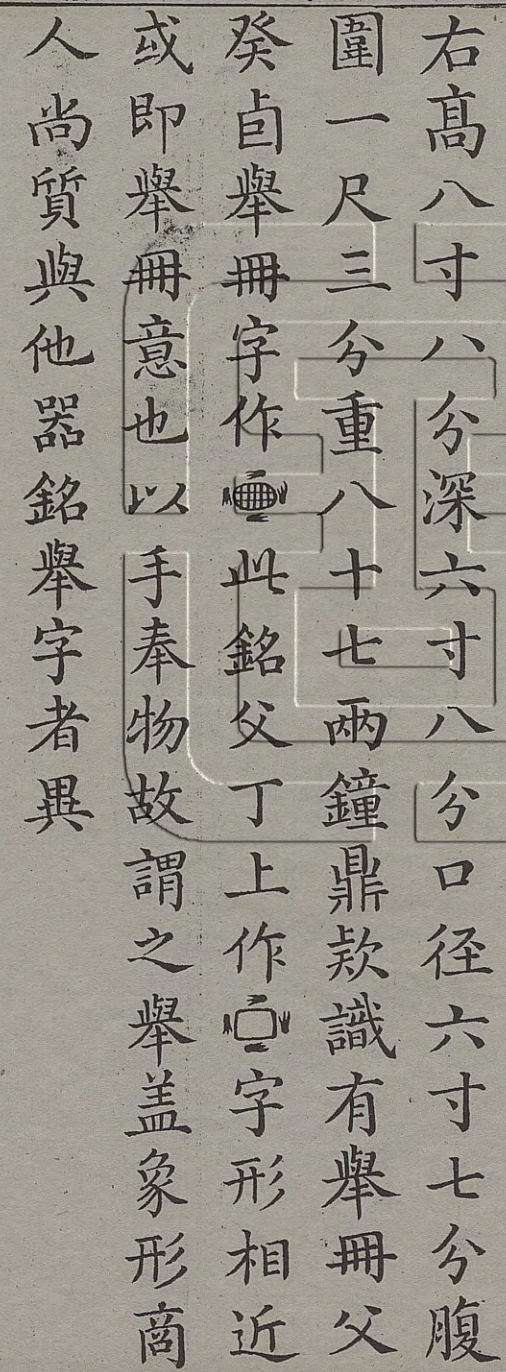 右高八寸八分深六寸八分口径六寸七分腹
圍一尺三分重八十七兩鐘鼎款識有舉冊父
癸卣舉冊字作此銘父丁上作字形相近
或即舉冊意也以手奉物故謂之舉盖象形商
人尚質與他器銘舉字者異